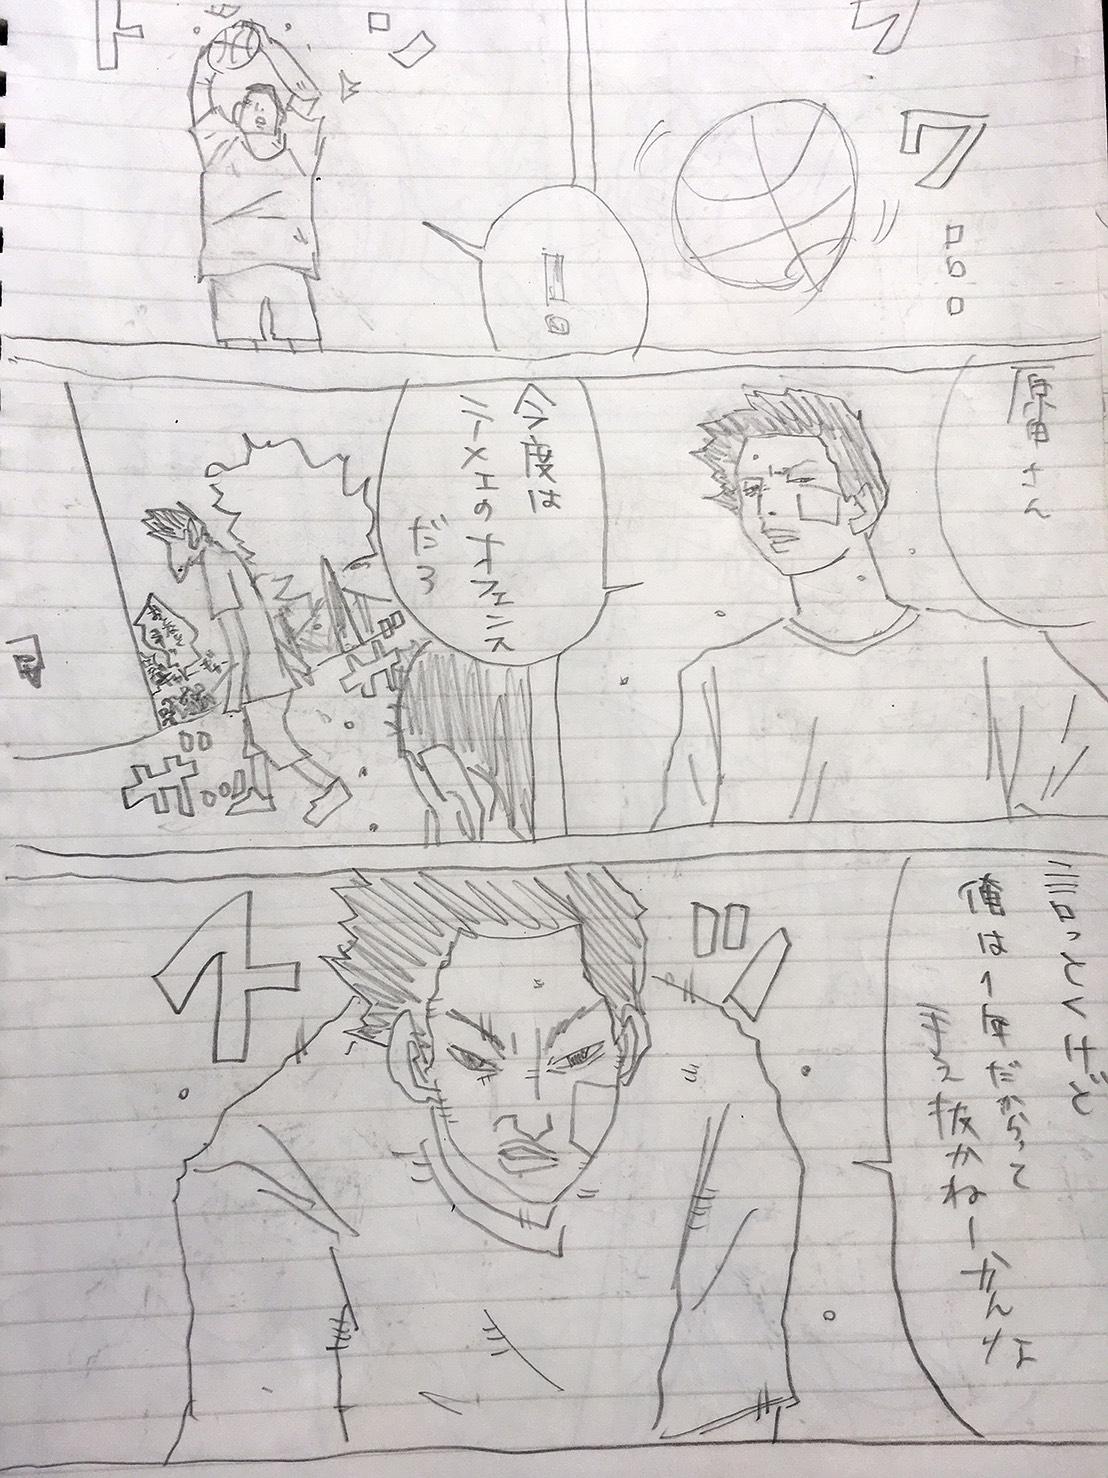 ワ
ト
原田さん
今度は
テメェのオフェンス
だろ
言っとくけど
俺は1年だからって
手え抜かねーかん
イ